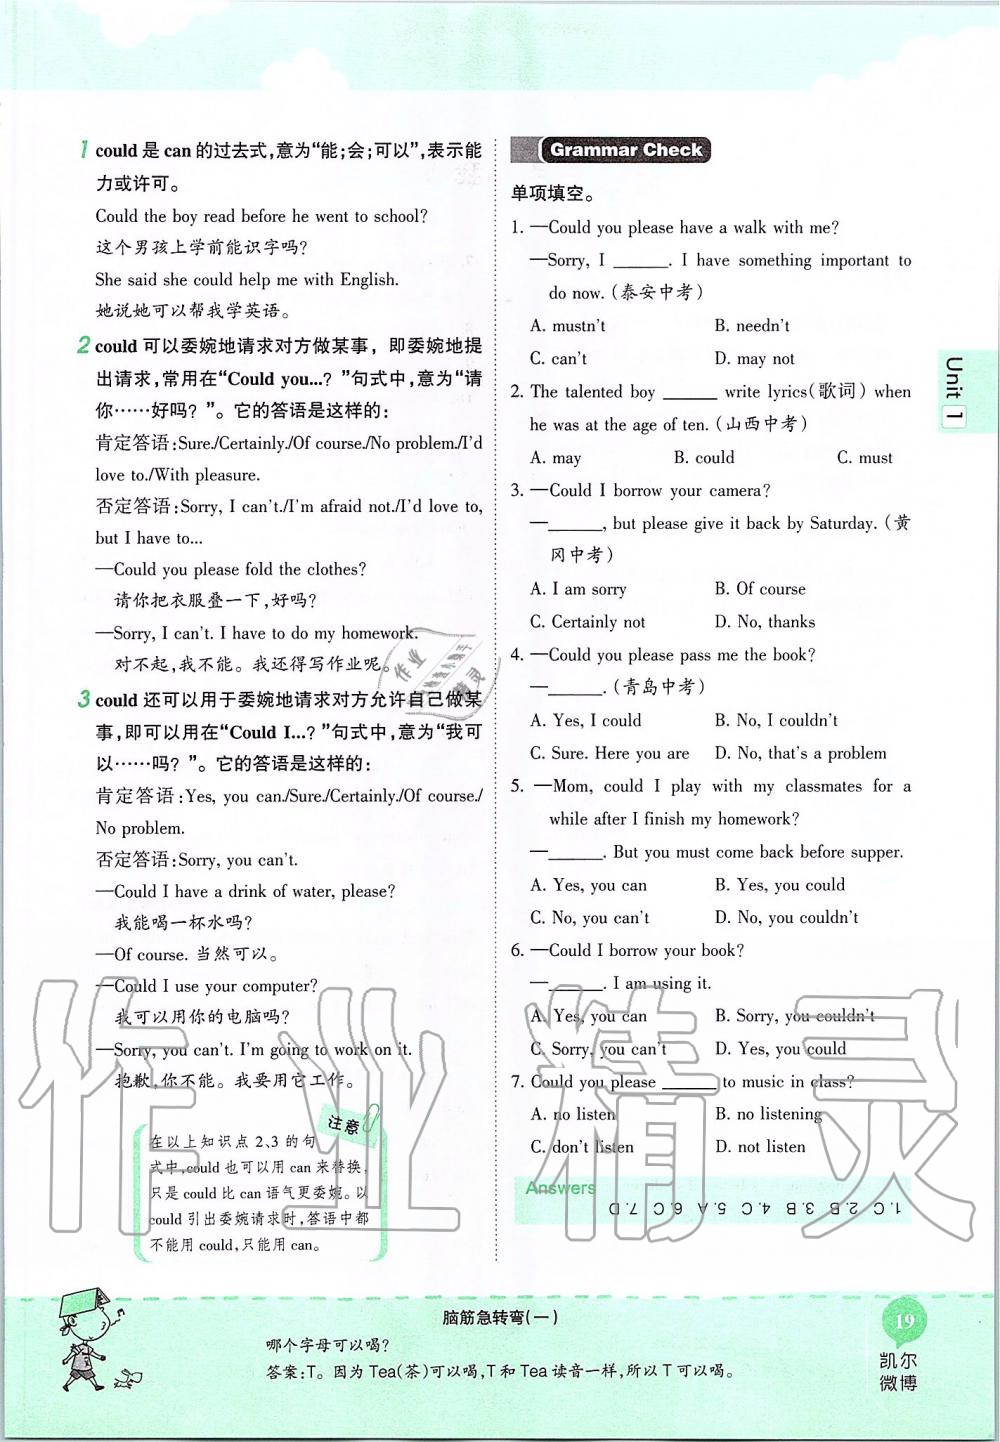 1 could 是 can 的过去式,意为“能;会;可以”,表示能
力或许可。
Could the boy read before he went to school?
这个男孩上学前能识字吗?
She said she could help me with English.
她说她可以帮我学英语。
2 could 可以委婉地请求对方做某事，即委婉地提
出请求,常用在“Could you...? ”句式中,意为“请
你……好吗? ”。它的答语是这样的:
肯定答语:Sure./Certainly./Of course./No problem./I'd
love to./With pleasure.
否定答语:Sorry, I can't./I'm afraid not./I'd love to,
but I have to...
—Could you please fold the clothes?
请你把衣服叠一下,好吗?
—Sorry, I can't. I have to do my homework.
对不起,我不能。我还得写作业呢。
3 could 还可以用于委婉地请求对方允许自己做某
事,即可以用在“Could I...? ”句式中,意为“我可
以……吗? ”。它的答语是这样的:
肯定答语:Yes, you can./Sure./Certainly./Of course./
No problem.
否定答语:Sorry, you can't.
—Could I have a drink of water, please?
我能喝一杯水吗?
—Of course. 当然可以。
—Could I use your computer?
我可以用你的电脑吗?
—Sorry, you can't. I'm going to work on it.
抱歉,你不能。我要用它工作。
注意
在以上知识点 2、3 的句
式中,could 也可以用 can 来替换,
只是 could 比 can 语气更委婉。以
could 引出委婉请求时,答语中都
不能用 could,只能用 can。
Grammar Check
单项填空。
1. —Could you please have a walk with me?
—Sorry, I ______. I have something important to
do now. (泰安中考)
A. mustn't B. needn't
C. can't D. may not
2. The talented boy ______ write lyrics(歌词) when
he was at the age of ten. (山西中考)
A. may B. could C. must
3. —Could I borrow your camera?
—______, but please give it back by Saturday. (黄
冈中考)
A. I am sorry B. Of course
C. Certainly not D. No, thanks
4. —Could you please pass me the book?
—______. (青岛中考)
A. Yes, I could B. No, I couldn't
C. Sure. Here you are D. No, that's a problem
5. —Mom, could I play with my classmates for a
while after I finish my homework?
—______. But you must come back before supper.
A. Yes, you can B. Yes, you could
C. No, you can't D. No, you couldn't
6. —Could I borrow your book?
—______. I am using it.
A. Yes, you can B. Sorry, you couldn't
C. Sorry, you can't D. Yes, you could
7. Could you please ______ to music in class?
A. no listen B. no listening
C. don't listen D. not listen
Answers
1. C 2. B 3. B 4. C 5. A 6. C 7. D
Unit 1
脑筋急转弯(一)
哪个字母可以喝?
答案:T。因为 Tea(茶)可以喝,T 和 Tea 读音一样,所以 T 可以喝。
19
凯尔
微博
作业精灵